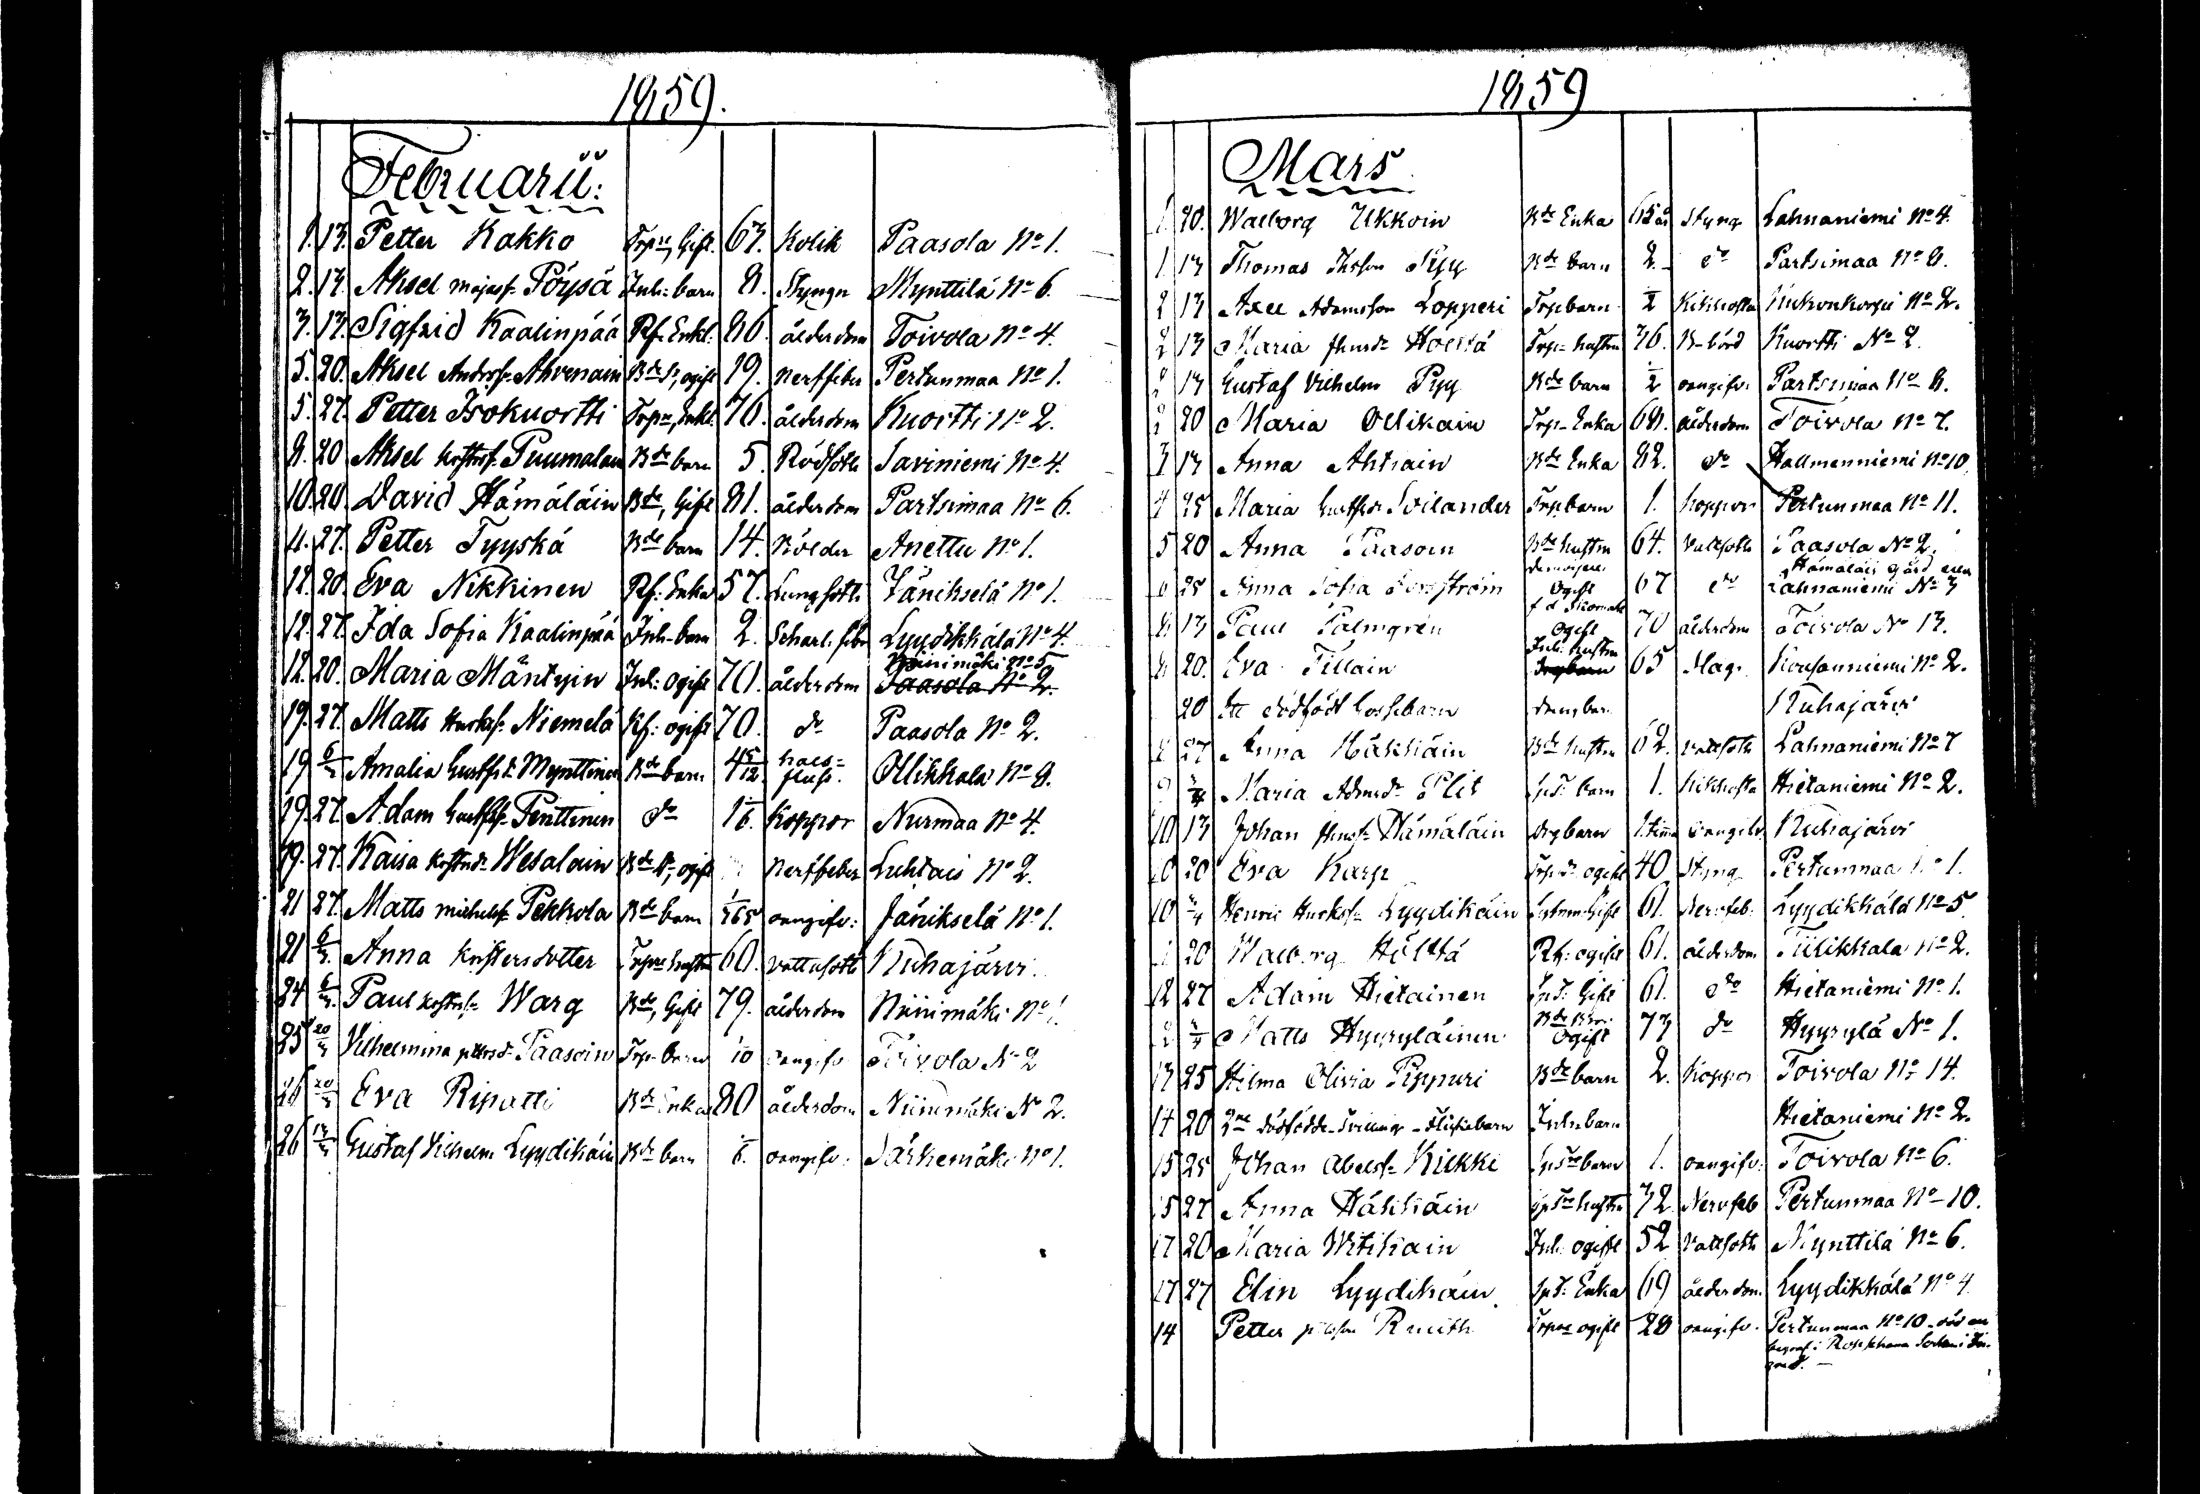 1859.
Februarii:
1. 13. Petter Kakko Trpre, Gift. 63. Kolik Paasola No 1.
2. 13. Aksel majasf. Pöysä Inh: barn 8. Styngn Mynttilä No 6.
3. 13. Sigfrid Kaalinpää Rf. Enkl: 86. ålderdom Toivola No 4.
5. 20. Aksel Andersf. Ahvenain Bde S, ogift 19. nerffeber Pertunmaa No 1.
5. 27. Petter Isokuortti Trpre, Enkl. 76. ålderdom Kuortti No 2.
8. 20 Aksel Kristersf. Puumalain Bde barn 5. Rödsoth Saviniemi No 4.
10. 20. David Hämäläin Bde, Gift 81. ålderdom Partsimaa No 6.
11. 27. Petter Tyyskä Bde barn 14. Bölder Anettu No 1.
12. 20. Eva Nikkinen Rf: Enka 57. Lungsoth Jänikselä No 1.
12. 27. Ida Sofia Kaalinpää Inh. barn 2. Scharl. feber Lyydikkälä No 4.
Niinimäki No 5
12. 20. Maria Mäntyin Inh: ogift 70. ålderdom Paasola No 2.
19. 27. Matts Niemelä Rf: ogift 70. do Paasola No 2.
19 6/3 Amalia Gustfsd. Mynttinen Bde barn 4 5/12 hals=
fluss. Ollikkala No 8.
19. 27. Adam Gustfsf. Penttinen do 1/6. Koppor Nurmaa No 4.
19. 27. Kaisa Kristersd. Wesalain Bde D, ogift nerffeber Luhtais No 2.
21 27. Matts michelsf. Pekkola Bde barn 1/365 oangifv: Jänikselä No 1.
21 6/3. Anna Kristersdotter Trpre hustru 60. vattusoth Ruhajärvi.
24 6/3 Paul Kristersf. Warg Bde, Gift 79. ålderdom Niinimäki No 1.
25 20/3 Vilhelmina pettersd. Paasoin Trp. barn 1/10 oangifv Toivola No 2
26 20/3 Eva Ripatti Bde Enka 80 ålderdom Niinimäki No 2.
26 13/3 Gustaf Vilhelm Lyydikäin Bde barn 1/6. oangifv: Särkemäki No 1.
1859
Mars
1. 20. Walborg Ukkoin Bde Enka 65 år styng Lahnaniemi No 4.
1 13 Thomas Thsson Pyy Bde barn 2. do Partsimaa No 8.
2 13 Axel Adamsson Lopperi Trp barn 1/2 Kikhosta Kukonkorpi No 2.
2 13 Maria Hölttä Trp. hustru 36. B-börd Kuortti No 2.
2 13 Gustaf Vilhelm Pyy Bde barn 1/2 oangifv: Partsimaa No 8.
2 20 Maria Ollikain Trp. Enka 68. ålderdom Toivola No 7.
3 13 Anna Ahtiain Bde Enka 82. do Hallmenniemi No 10
4 25 Maria Gustfsdr Soilander Trp barn 1. koppor Pertunmaa No 11.
5 20 Anna Paasoin Bde hustru 64. Vattsoth Paasola No 2.
6 25 Anna Sofia Ogift 67 do Hämäläis gård eller
Lahnaniemi No 3
8 13 Paul Palmgren Ogift 70 ålderdom Toivola No 13.
8 20. Eva Tillain Inh: hustru 65 Slag. Koirsanniemi No 2.
20 Ett dödfödt Gossebarn dreng bar. Ruhajärvi
8 27 Anna Häkkäin Bde hustru 62. vattsoth Lahnaniemi No 7
9 Maria Adamsdr Plit barn 1. kikhosta Hietaniemi No 2.
10 13 Johan Hämäläin Drg barn 1. timma oangifv. Ruhajärvi
10 20 Eva Karp ogift 40 Styng Pertunmaa No 1.
10 Henric Henrikss. Lyydikäin Gift 61. Nervfeb. Lyydikkälä No 5
20 Walborg Hölttä Rf: ogift 61. ålderdom Tiilikkala No 2.
12 27 Adam Hietainen Gift 61. do Hietaniemi No 1.
Matts Hyyryläinen Ogift 73 do Hyyrylä No 1.
13 25 Hilma Olivia Pippuri Bde barn 2. koppor Toivola No 14.
14 20 2ne dödfödde Tvilling-Flickebarn Inh. barn Hietaniemi No 2.
15 25 Johan Abelsf. Kilkki barn 1. oangifv: Toivola No 6.
15 27 Anna Häkkäin hustru 32 Nervfeb Pertunmaa No 10.
17 20 Maria Witikain Inh: ogift 52 Vattsoth Mynttilä No 6.
17 27 Elin Lyydikäin Enka 69 ålderdom Lyydikkälä No 4
14 Petter Ruuth Trpre ogift 28 oangifv. Pertunmaa No 10